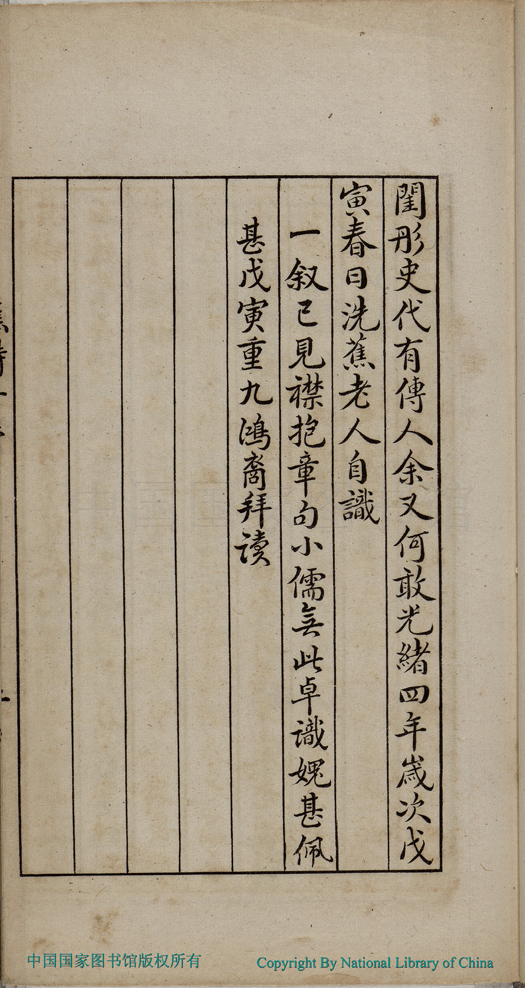 閨彤史代有傳人余又何敢光緒四年歲次戊
寅春日洗蕉老人自識
一叙已見襟抱章句小儒無此卓識媿甚佩
甚戊寅重九鴻裔拜读
中国国家图书馆版权所有
Copyright By National Library of China